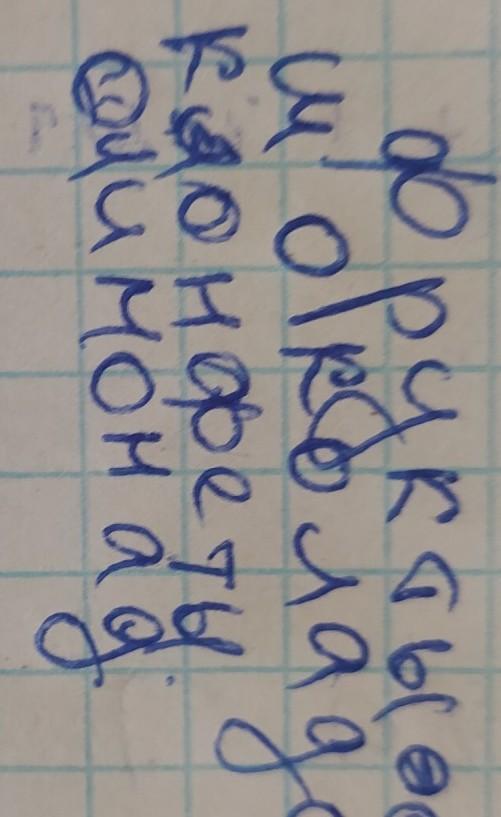 фрукты
шоколад
конфеты
лимонад